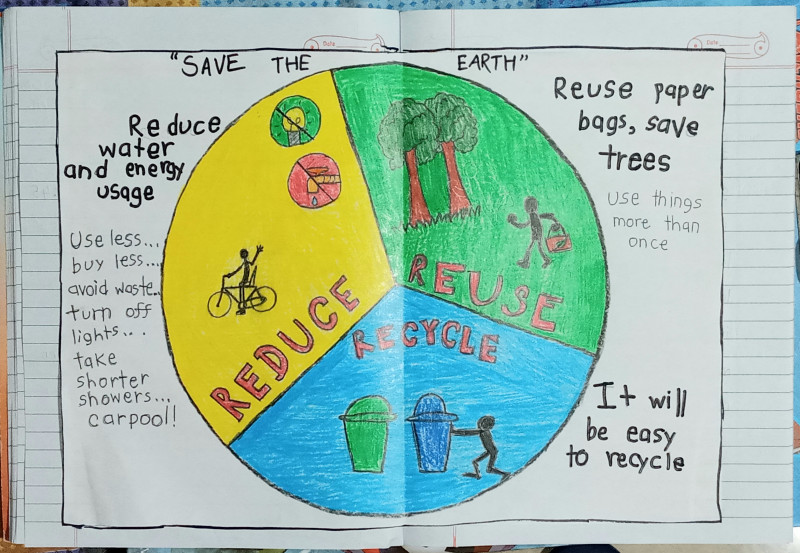 Date
Date
"SAVE THE EARTH"
Reduce
water
and energy
usage
Use less...
buy less....
avoid waste..
turn off
lights...
take
shorter
showers...
carpool!
REDUCE
REUSE
RECYCLE
Reuse paper
bags, save
trees
Use things
more than
once
It will
be easy
to recycle